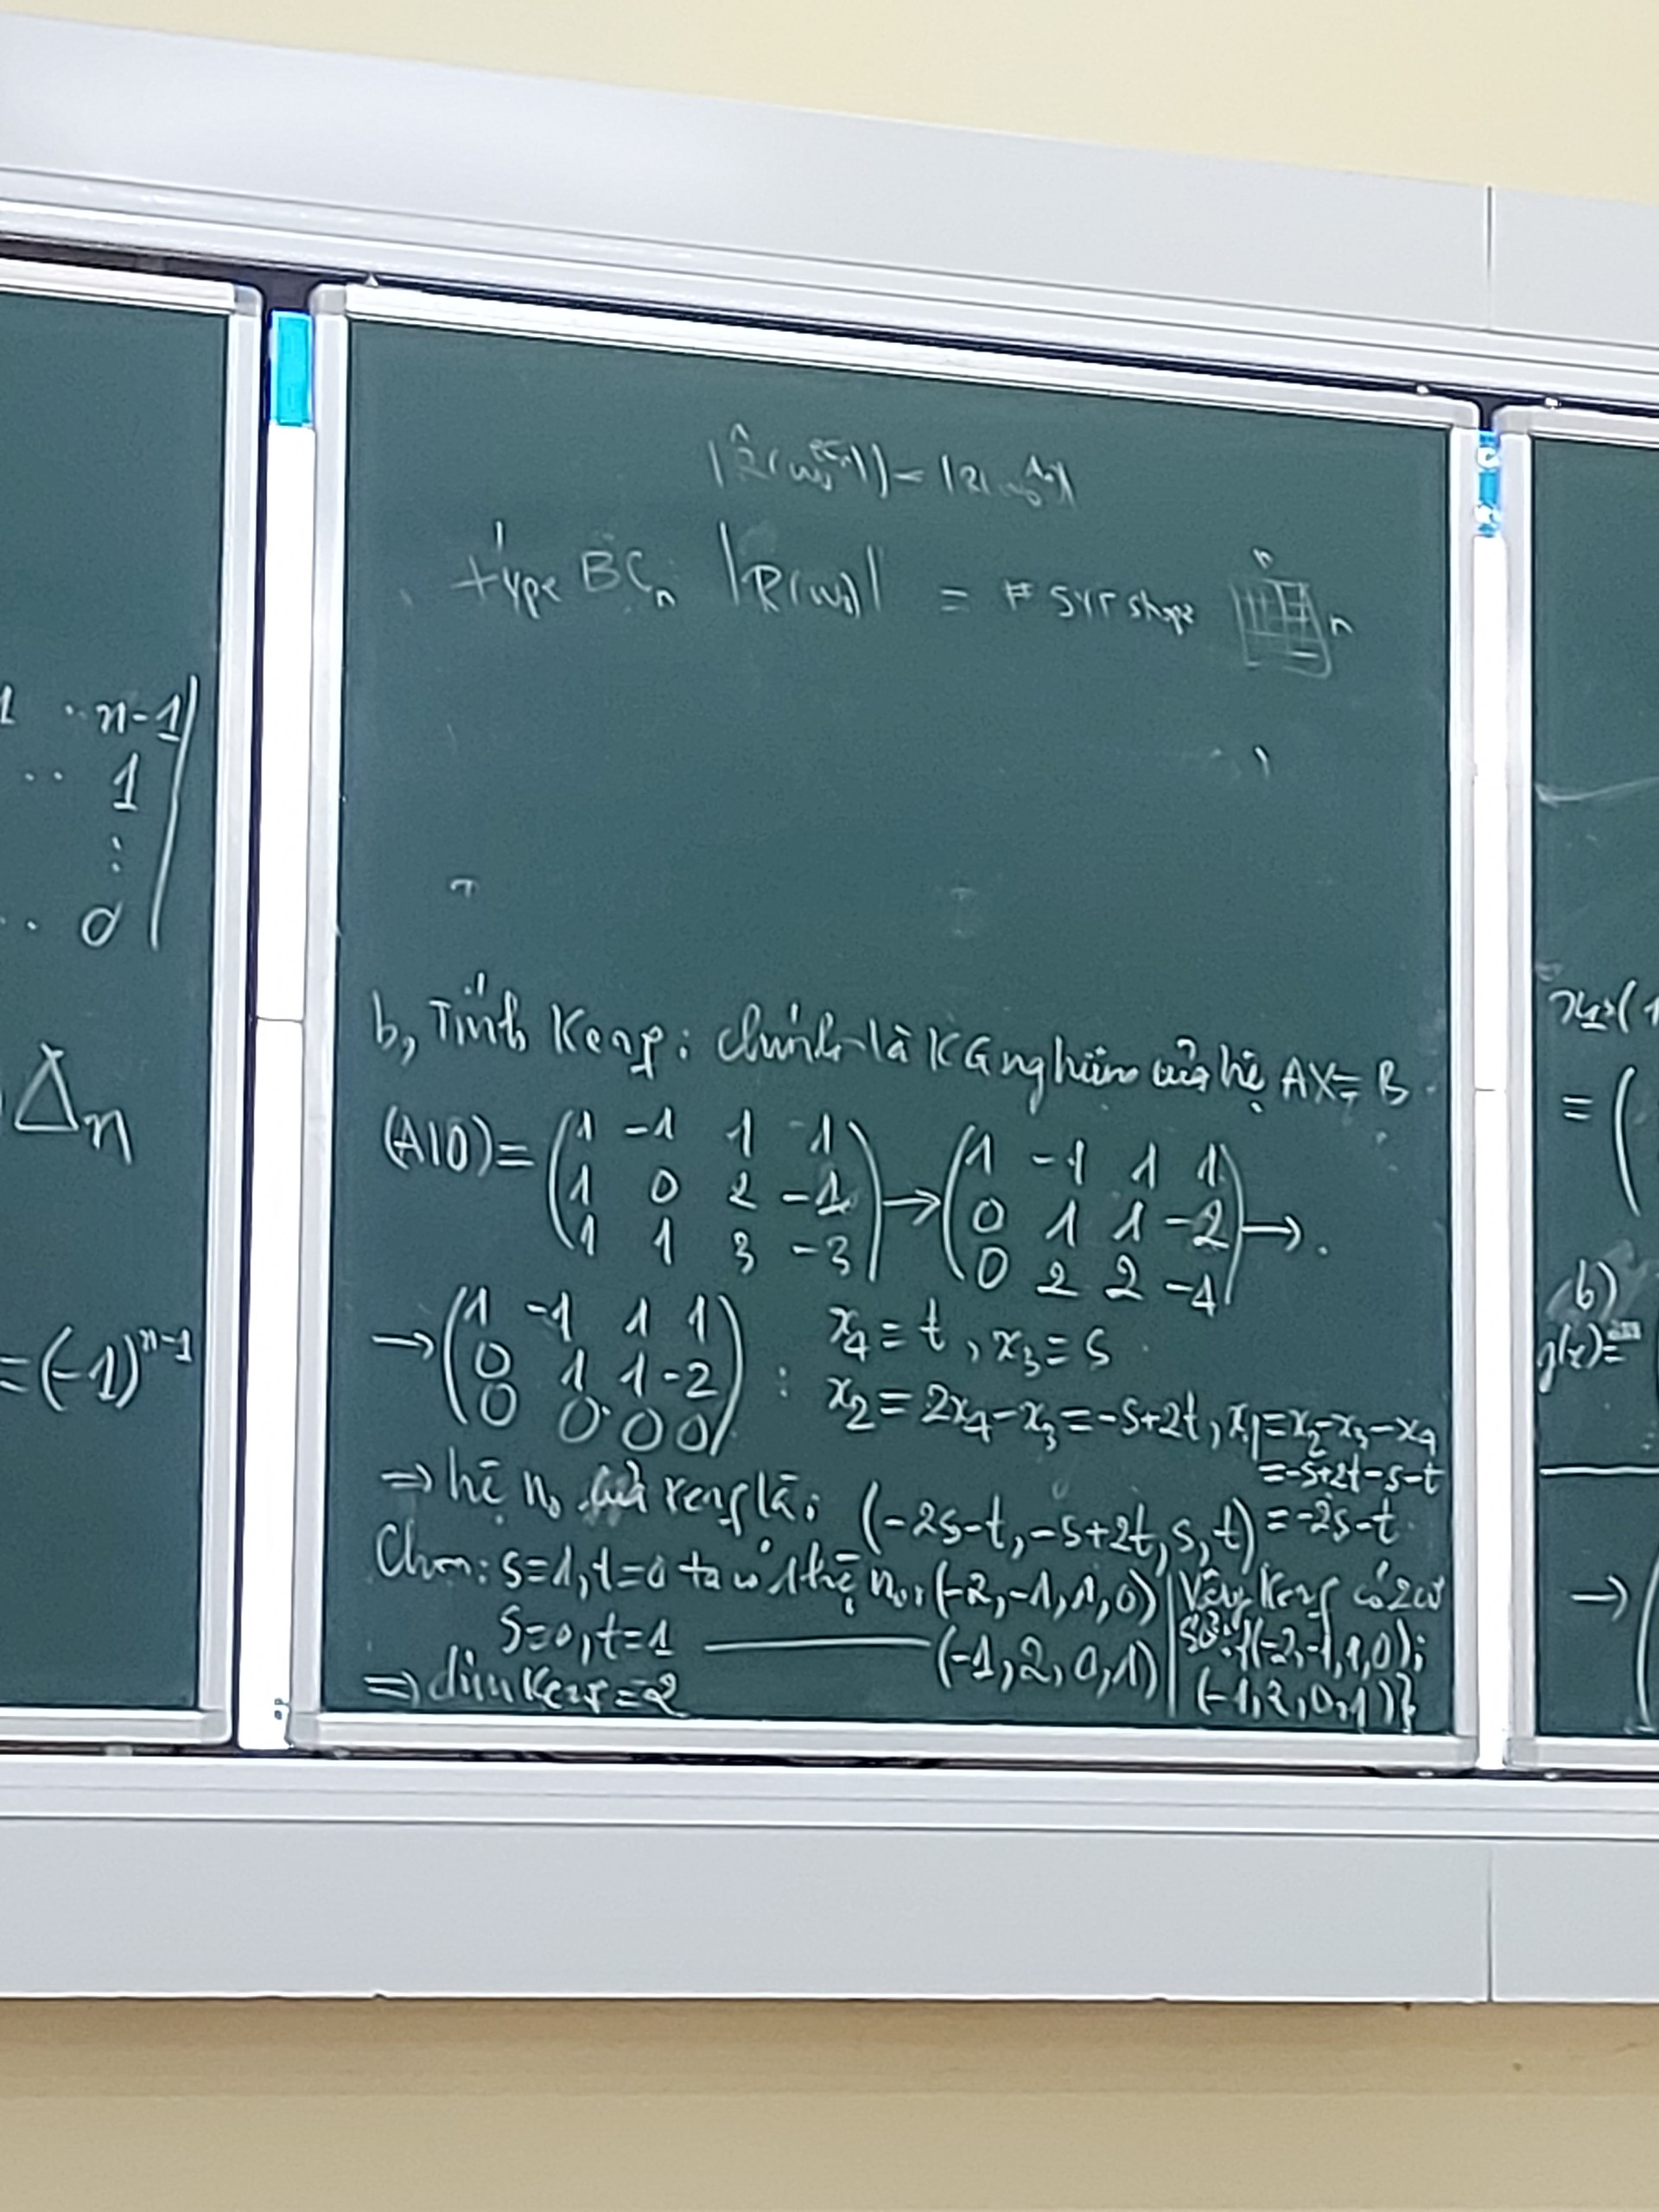 1 .. n-1
.. 1
⋮
.. 0
Δn
=(-1)^{n-1}
type BCn |R(w0)| = # SYT shape n n
b, Tính Kerf: chính là KG nghiệm của hệ AX= B
(A|0)= ( 1 -1 1 1
1 0 2 -1
1 1 3 -3 ) → ( 1 -1 1 1
0 1 1 -2
0 2 2 -4 ) → .
→ ( 1 -1 1 1
0 1 1 -2
0 0 0 0 ) : x4 = t , x3 = s
x2 = 2x4 - x3 = -s+2t, x1 = x2-x3-x4
= -s+2t-s-t
⇒ hệ no của kerf là: (-2s-t, -s+2t, s, t) = -2s-t
Chọn: s=1, t=0 ta có 1 hệ no: (-2, -1, 1, 0)
s=0, t=1 ——— (-1, 2, 0, 1)
⇒ dim Kerf = 2
Vậy Kerf có 2 cơ
sở: {(-2,-1,1,0);
(-1,2,0,1)}
b)
g(x)=
→ (